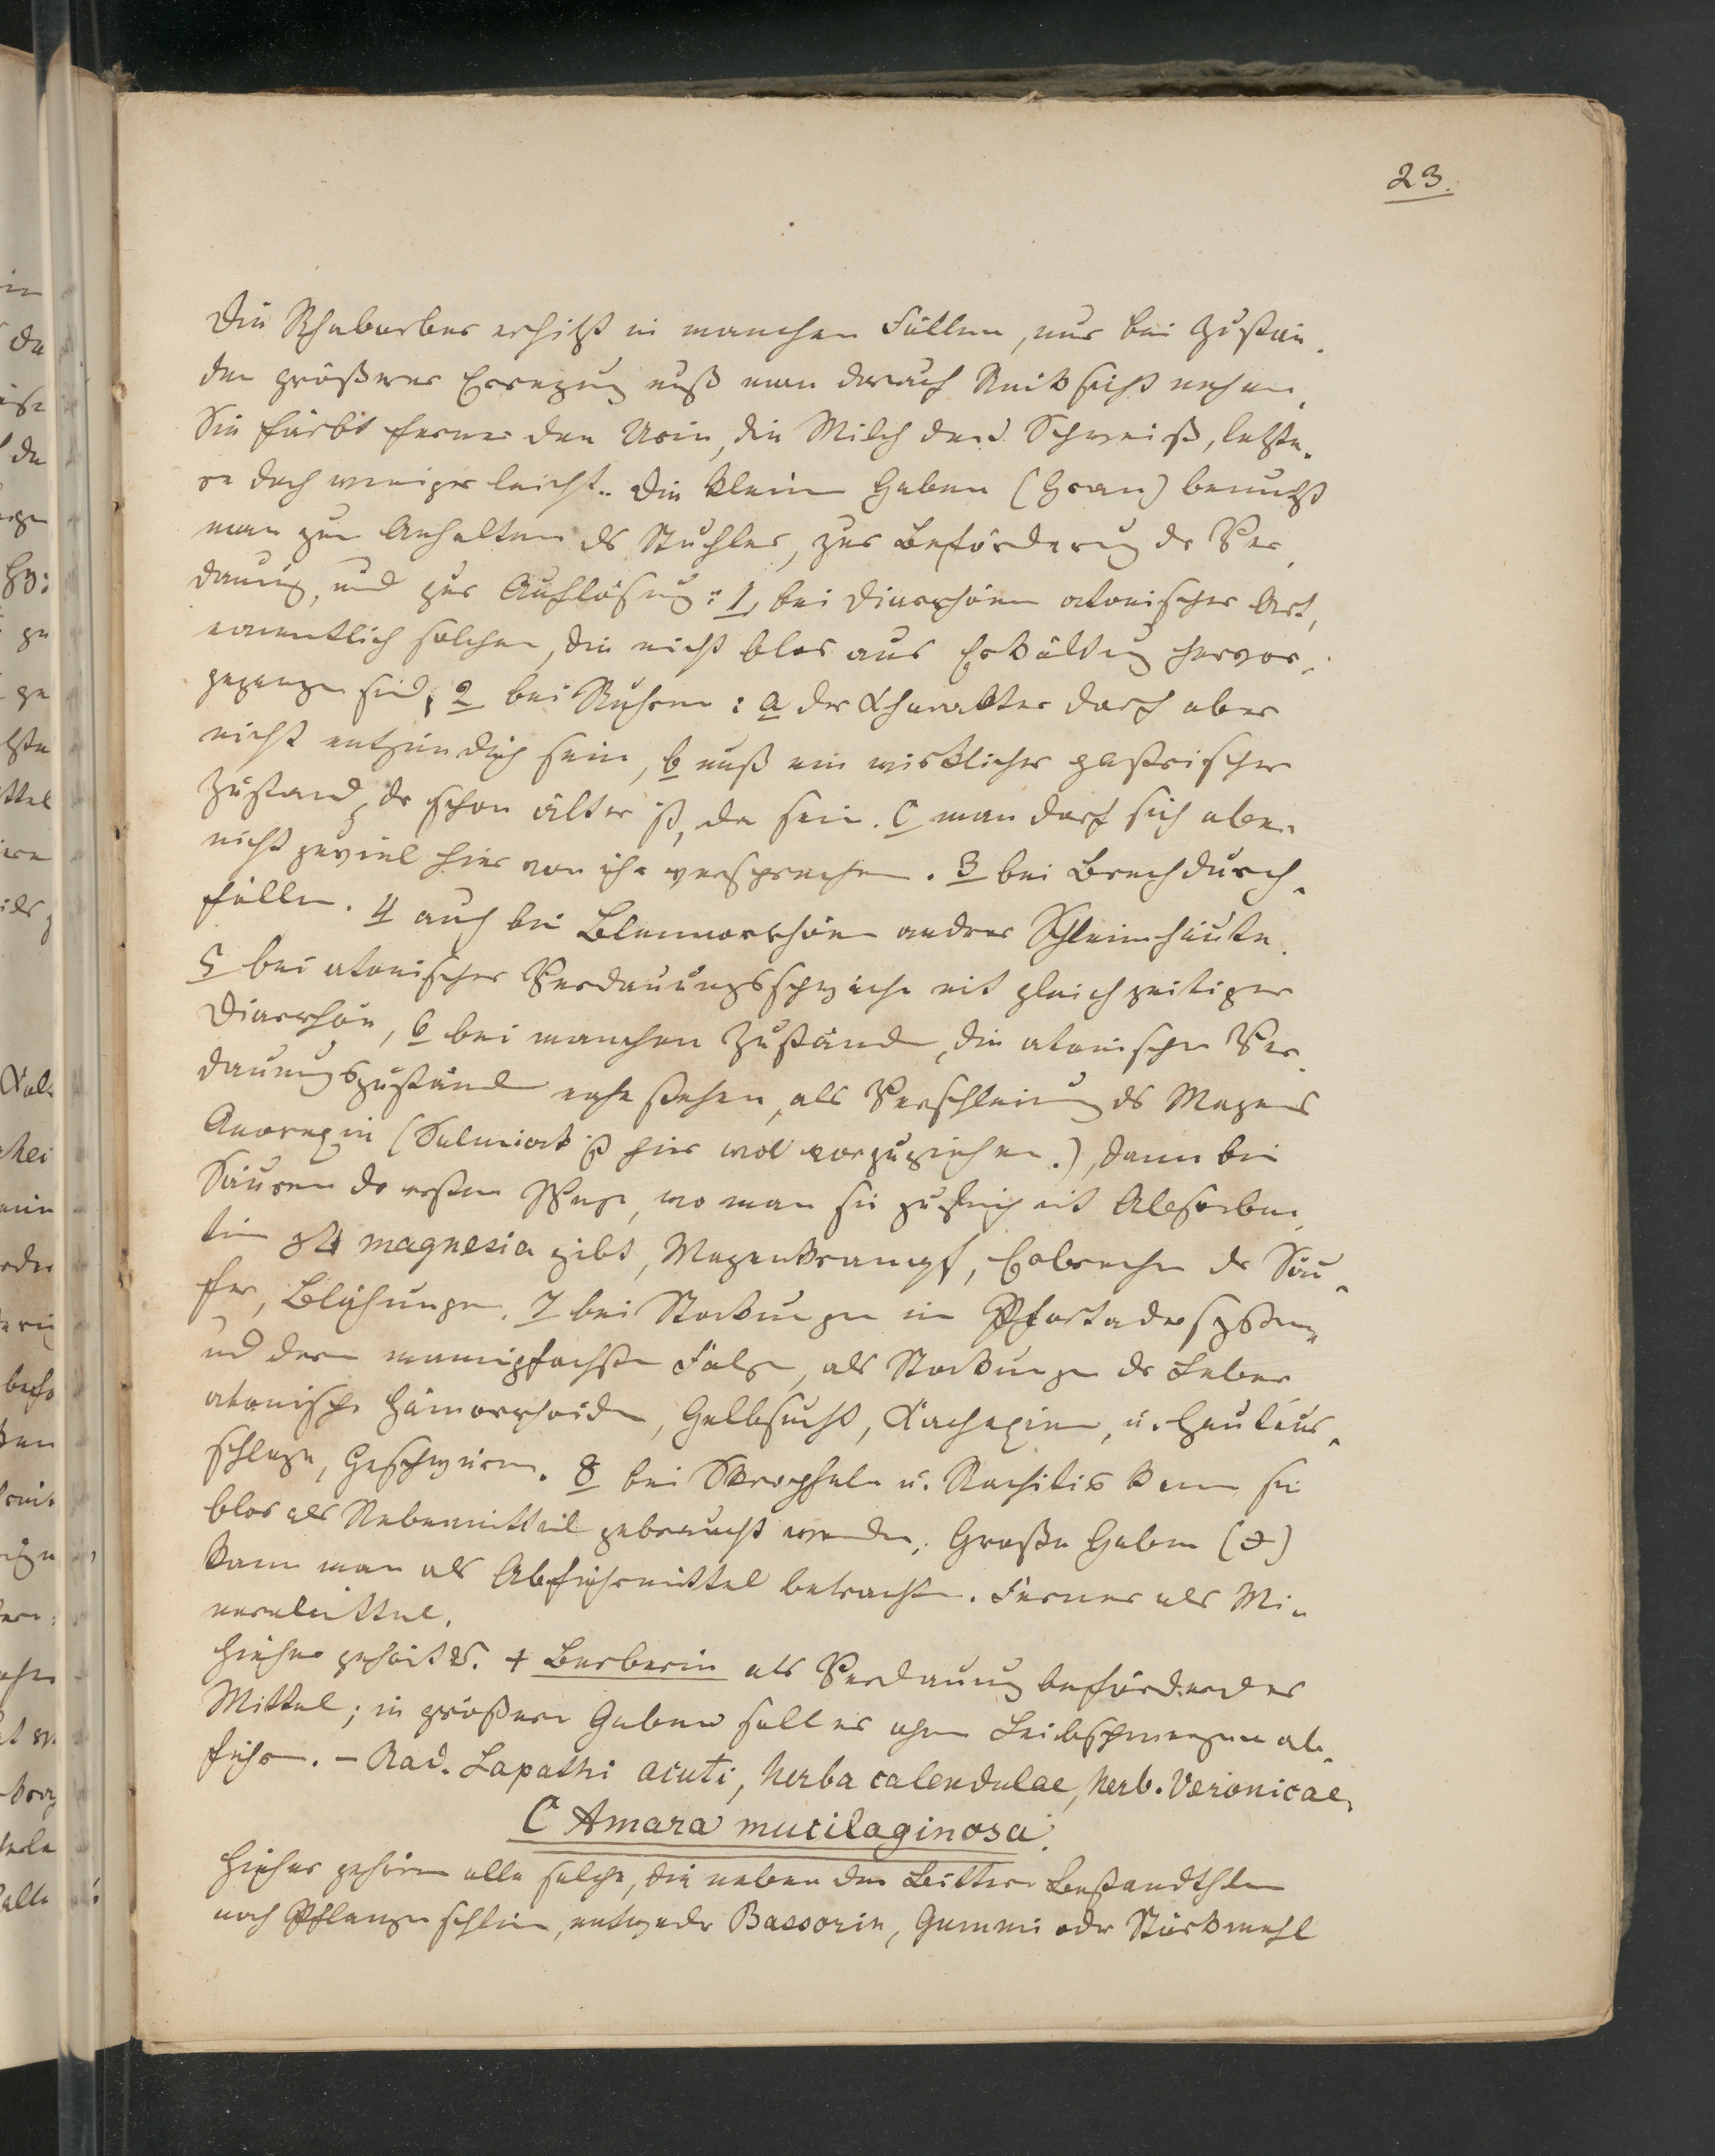 23.
Die Rhabarber erhitzt in manchen Fällen, nur bei Zustän-
den größerer Erregung muß man darauf Rücksicht nehmen.
Sie färbt ferner den Urin, die Milch den Schweiß, letzte-
re doch weniger leicht. Die kleine Gaben (Gran) benutzt
man zum Anhalten ds Stuhles, zur Beförderung dr Ver-
dauung, und zur Auflösung: 1, bei Diarrhöen atonischer Art,
namentlich solchen, die nicht blos aus Erkältung hervor-
gegangen sind, 2 bei Ruhren: a der Charakter darf aber
nicht entzündlich sein, b muß ein wirklicher gastrischer
Zustand, dr schon älter ist, da sein. c man darf sich aber
nicht zuviel hier von ihr versprechen. 3 bei Brechdurch-
fällen. 4 auch bei Blennorrhöen andrer Schleimhäute.
5 bei atonischer Verdauungsschwäche mit gleichzeitiger
Diarrhöe, 6 bei manchen Zuständen, die atonischen Ver-
dauungszuständen nahe stehen, als Verschleimung ds Magens
Anorexie (Salmiak ist hier wol vorzuziehen.), dann bei
Säuren dr ersten Wege, wo man sie zugleich mit Absorben-
tien magnesia gibt, Magenkrampf, Erbrechen dr Säu-
fer, Blähungen. 7 bei Stockungen im Pfortadersystem
und deren mannigfachsten Folgen, als Stockungen dr Leber
atonische Hämorrhoiden, Gelbsucht, Kachexien, u. Hautaus-
schläge, Geschwüren. 8 bei Skropheln u. Rachitis kann sie
blos als Nebenmittel gebraucht werden. Große Gaben (℈)
kann man als Abführmittel betrachten. Ferner als Mi-
neralmittel.
Hieher gehört + Berberin als Verdauung beförderndes
Mittel; in größeren Gaben soll es ohne Leibschmerzen ab-
führen. – Rad. Lapathi acuti, herba calendulae, herb. Veronicae.
C Amara mucilaginosa.
Hieher gehören alle solche, die neben den Bittern Bestandthlen
noch Pflanzenschleim, entweder Bassorin, Gummi oder Stärkmehl